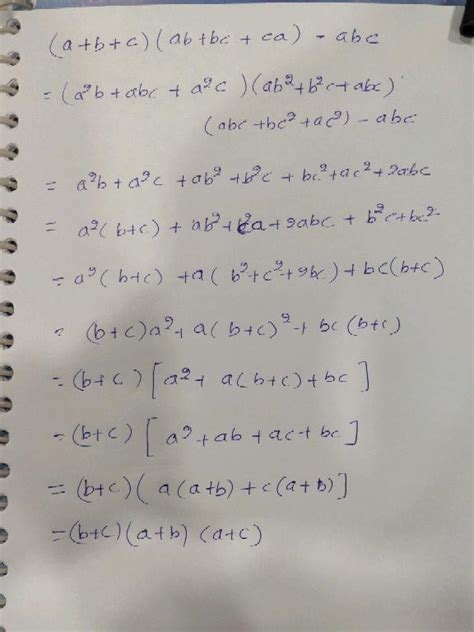 (a+b+c) (ab+bc + ca) - abc
= (a²b + abc + a²c ) (ab² + b²c + abc)
(abc + bc² + ac²) - abc
= a²b + a²c + ab² + b²c + bc² + ac² + 2abc
= a² ( b+c) + ab² + c²a + 2abc + b²c + bc²
= a² ( b+c) + a ( b² + c² + 2bc) + bc (b+c)
= (b+c)a² + a ( b+c)² + bc (b+c)
= (b+c ) [ a² + a (b+c) + bc ]
= (b+c) [ a² + ab + ac + bc ]
= (b+c) ( a (a+b) + c (a+b) ]
= (b+c) (a+b) (a+c)